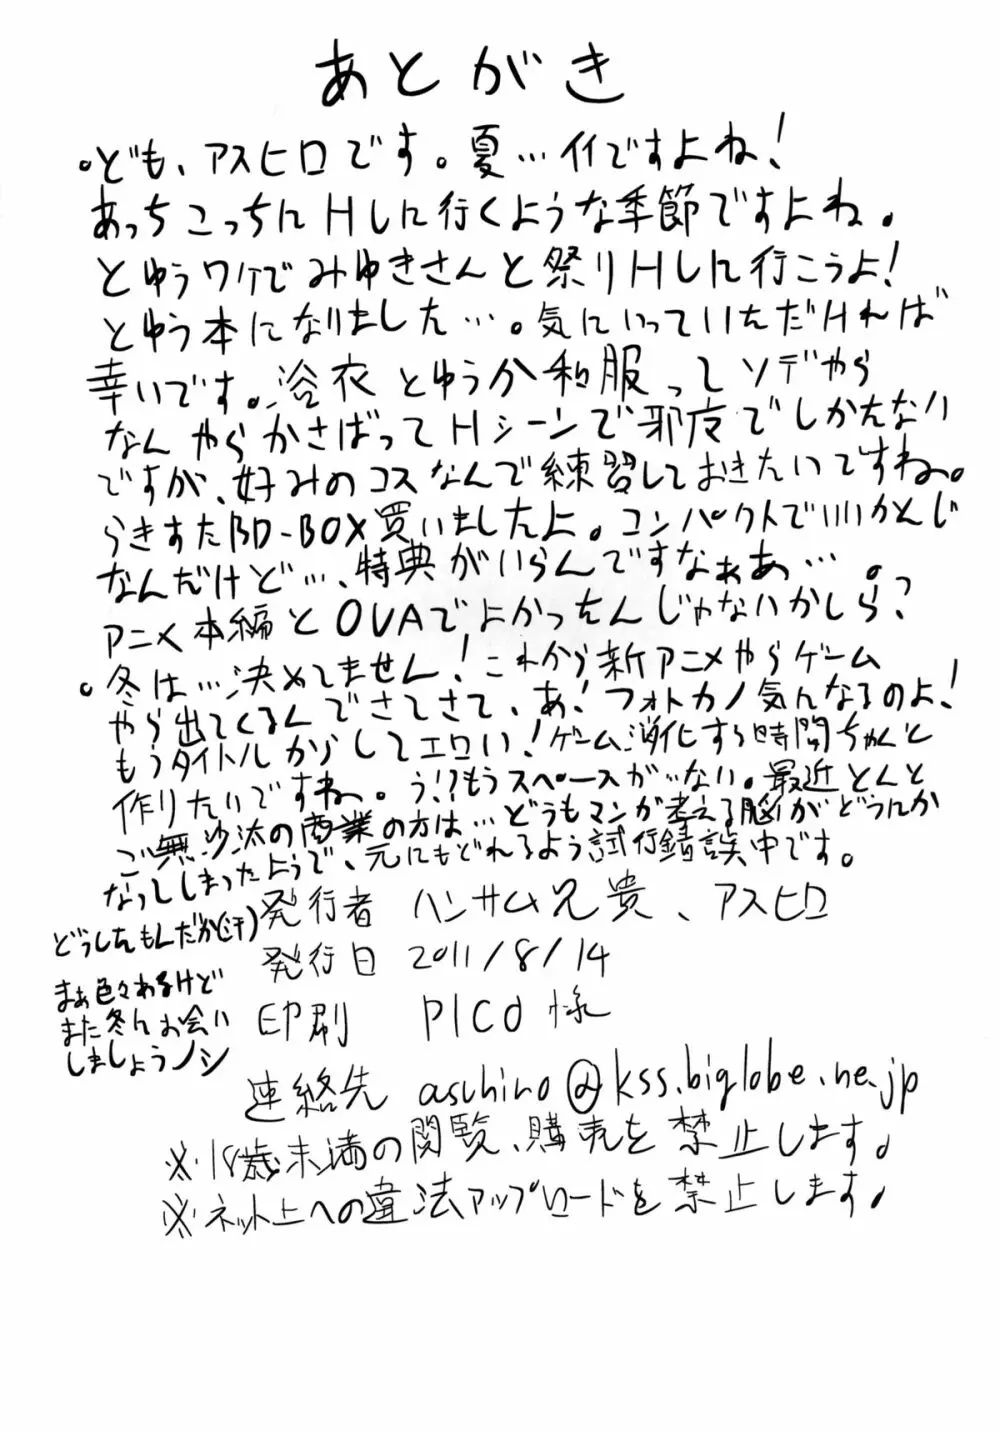 あとがき
。ども、アスヒロです。夏…イイですよね！
あっちこっちにHしに行くような季節ですよね。
とゆうワケでみゆきさんと祭りHしに行こうよ！
とゆう本になりました…。気にいっていただければ
幸いです。浴衣とゆうか和服ってソデやら
なんやらかさばってHシーンで邪魔でしかたない
ですが、好みのコスなんで練習しておきたいですね。
らきすたBD-BOX買いましたよ。コンパクトでいいかんじ
なんだけど…、特典がいらんですなぁあ…。
アニメ本編とOVAでよかったんじゃないかしら？
。冬は…決めてません！これから新アニメやらゲーム
やら出てくるんでさてさて、あ！フォトカノ気んなるのよ！
もうタイトルからしてエロい！ゲーム消化する時間ちゃんと
作りたいですね。う!?もうスペースがない。最近とんと
ご無沙汰の商業の方は…どうもマンガ考える脳がどうにか
なってしまったようで、元にもどれるよう試行錯誤中です。
どうしたもんだか(汗)
まぁ色々あるけど
また冬にお会い
しましょうノシ
発行者 ハンサム兄貴、アスヒロ
発行日 2011/8/14
印刷 PICO様
連絡先 aschino@kss.biglobe.ne.jp
※18歳未満の閲覧、購売を禁止します。
※ネット上への違法アップロードを禁止します。